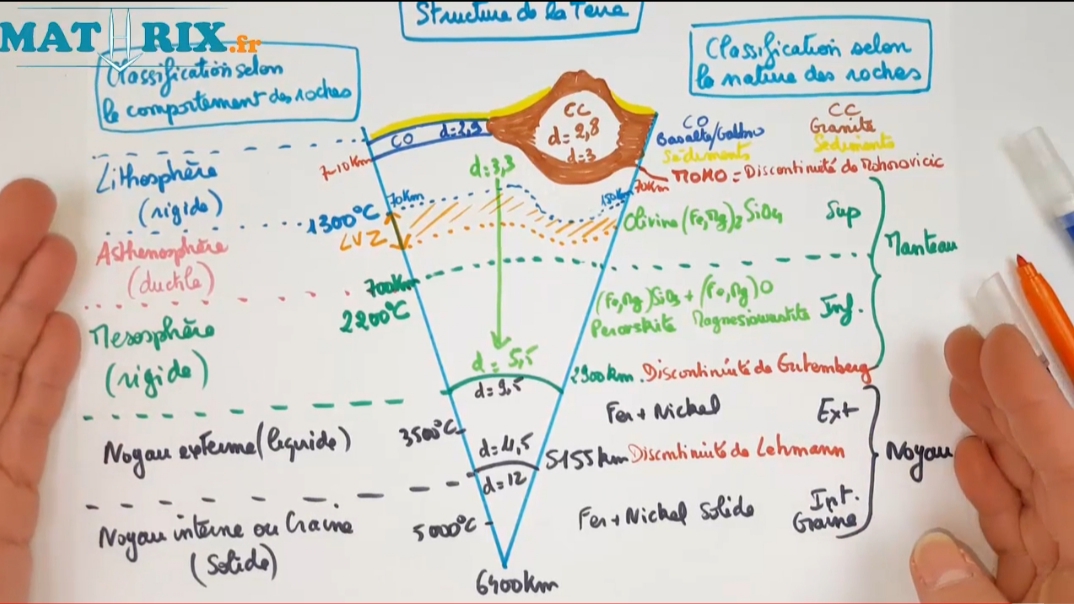 MATHRIX.fr
Structure de la Terre
Classification selon
le comportement des roches
Classification selon
la nature des roches
CO
d=2,9
CC
d=2,8
d=3
CO
Basalte/Gabbro
Sédiments
CC
Granite
Sédiments
7-10Km
70Km
MOHO = Discontinuité de Mohorovicic
Lithosphère
(rigide)
d=3,3
70Km
150Km
1300°C
LVZ
Olivine (Fe,Mg)2SiO4
Sup
Manteau
Asthénosphère
(ductile)
700Km
2200°C
(Fe,Mg)SiO3 + (Fe,Mg)O
Perovskite Magnesiowustite
Inf.
Mesosphère
(rigide)
d=5,5
d=9,5
2900km. Discontinuité de Gutemberg
Noyau externe (liquide)
3500°C
Fer + Nickel
Ext
d=11,5
5155km Discontinuité de Lehmann
Noyau
d=12
Noyau interne ou Graine
(Solide)
5000°C
Fer + Nickel Solide
Int.
Graine
6400km